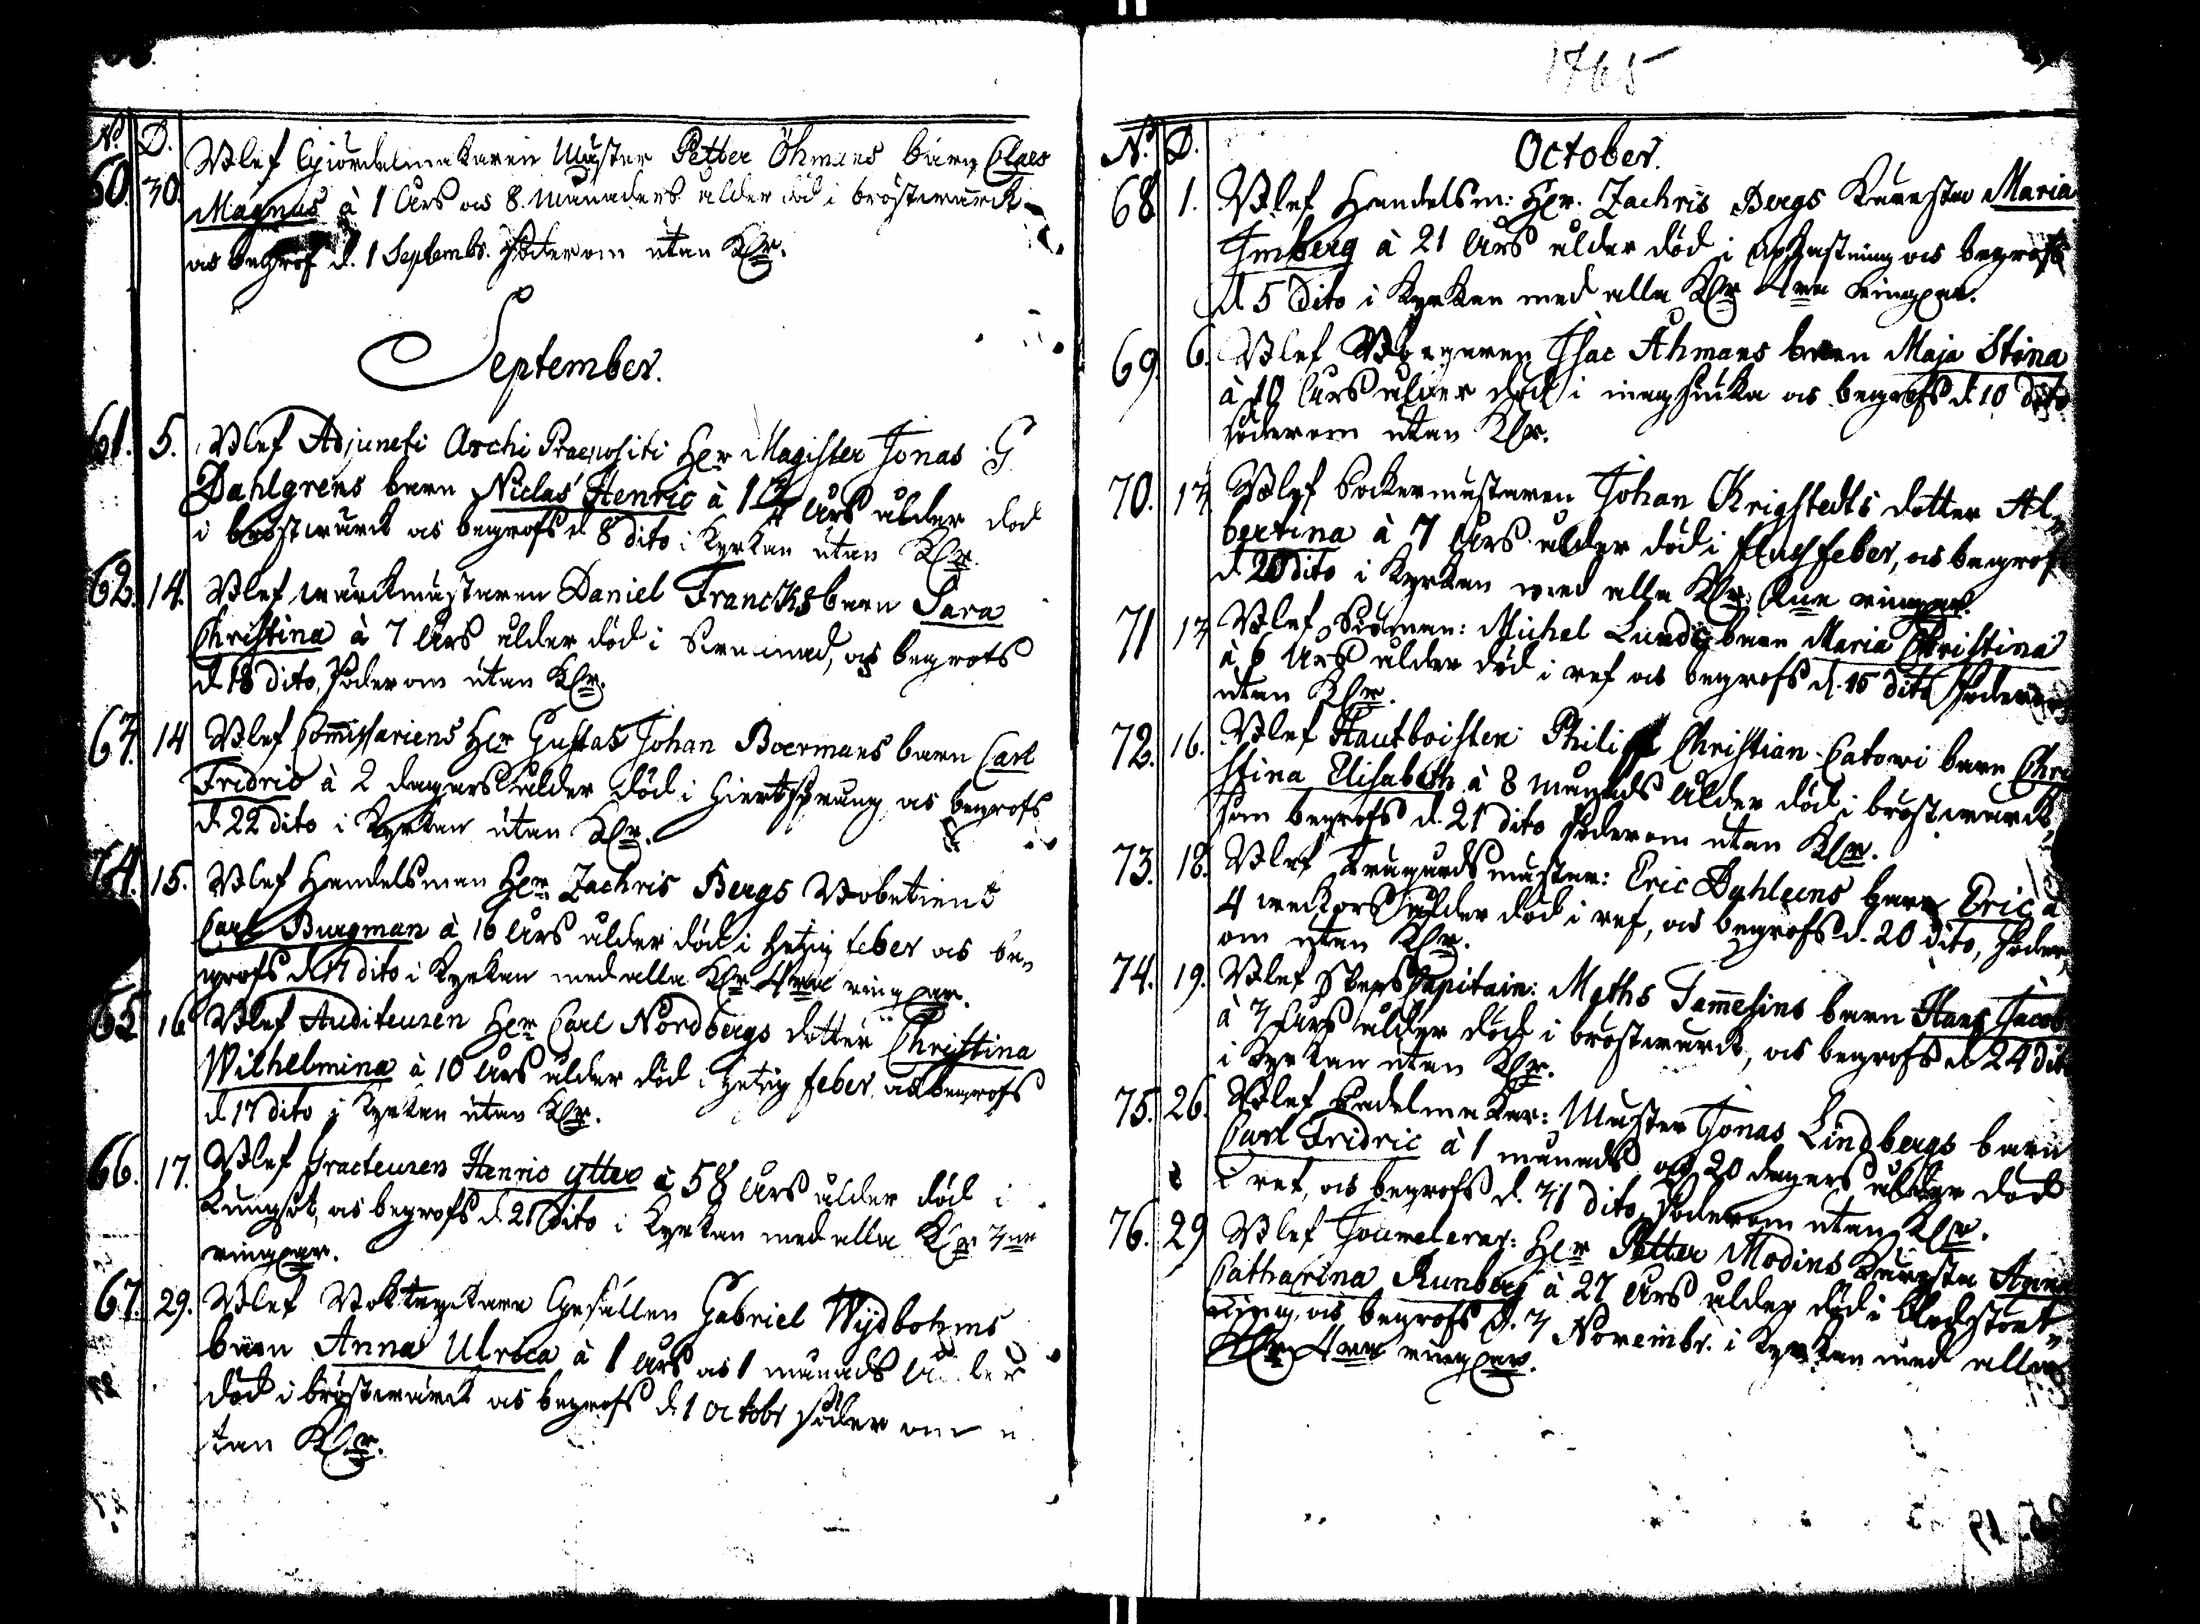 No. D.
60. 30. Blef Giördelmakaren Mäster Petter Öhmans barn Claes
Magnus à 1 åhrs os 8. Månaders ålder död i bröstwärck
os begrof d. 1 Septembr. Söder om utan Klr.
September.
61. 5. Blef Adjuncti Archi Præpositi Her Magister Jonas G
Dahlgrens barn Niclas Henric à 1 åhrs ålder död
i bröstwärck os begrofs d 8 dito i Kyrkan utan Klr.
62. 14. Blef murmästaren Daniel Francks barn Sara
Christina à 7 åhrs ålder död i os begrofs
d. 18 dito, Söder om utan Klr.
63. 14 Blef Commissariens Her Gustaf Johan Boermans barn Carl
Fridric à 2 dagars ålder död i Hiertsprång os begrofs
d. 22 dito i Kyrkan utan Klr.
64. 15. Blef Handelsman Her Zachris Bergs Bobetient
Carl Burgman à 16 åhrs ålder död i hetzig feber os be-
grofs d. 17 dito i Kyrkan med alla Klr 4ra ringar.
65 16 Blef Auditeuren Her Carl Nordbergs dotter Christina
Wilhelmina à 10 åhrs ålder död i hetzig feber, os begrofs
d 17 dito i Kyrkan utan Klr.
66. 17. Blef Tracteuren Henric ytter à 58 åhrs ålder död i
Lungsot, os begrofs d. 21 dito i Kyrkan med alla Klr 3ne
ringar.
67. 29. Blef Boktryckare Gesällen Gabriel Wijdbohms
barn Anna Ulrica à 1 åhrs os 1 månads ålder
död i bröstwärck os begrofs d. 1 octobr söder om u
tan Klr.
1765
No. D. October.
68. 1. Blef Handelsm: Her. Zachris Bergs Kånsta Maria
Imberg à 21 åhrs ålder död i os begrofs
d 5 dito i Kyrkan med alla Klr 4ra ringar.
69. 6. Blef Isac Åhmans barn Maja Stina
à 10 åhrs ålder död i magsiuka os begrofs d. 10 dito
söder om utan Klr.
70. 13 Blef Johan Krigstedts dotter Al-
bertina à 7 åhrs ålder död i fläckfeber, os begrofs
d. 20 dito i Kyrkan med alla Klr: ringar.
71 13 Blef Siöman: Michel Lunds barn Maria Christina
à 6 åhrs ålder död i ref os begrofs d. 15 dito Söder om
utan Klr.
72. 16. Blef Hautboisten Philip Christian Catowi barn Chri
stina Elisabeth à 8 Månads ålder död i bröstwärck,
som begrofs d. 21 dito söder om utan Klr.
73. 18. Blef Trägårds mästar: Eric Dahleens barn Eric à
4 weckors ålder död i ref, os begrofs d. 20 dito, söder
om utan Klr.
74. 19. Blef Skeps Capitain: Maths Tammelins barn Hans Jacob
à 3 åhrs ålder död i bröstwärck, os begrofs d 24 dit
i Kyrkan utan Klr.
75. 26. Blef Sadelmakar: Mäster Jonas Lindbergs barn
Carl Fridric à 1 månads os 20 dagars ålder död
i ref, os begrofs d. 31 dito, Söder om utan Klr.
76. 29 Blef Jouvelerar: Her Petter Modins
Catharina Runberg à 27 åhrs ålder död i blodstört-
ning, os begrofs d. 3 Novembr. i Kyrkan med alla
Klr 4ra ringar.